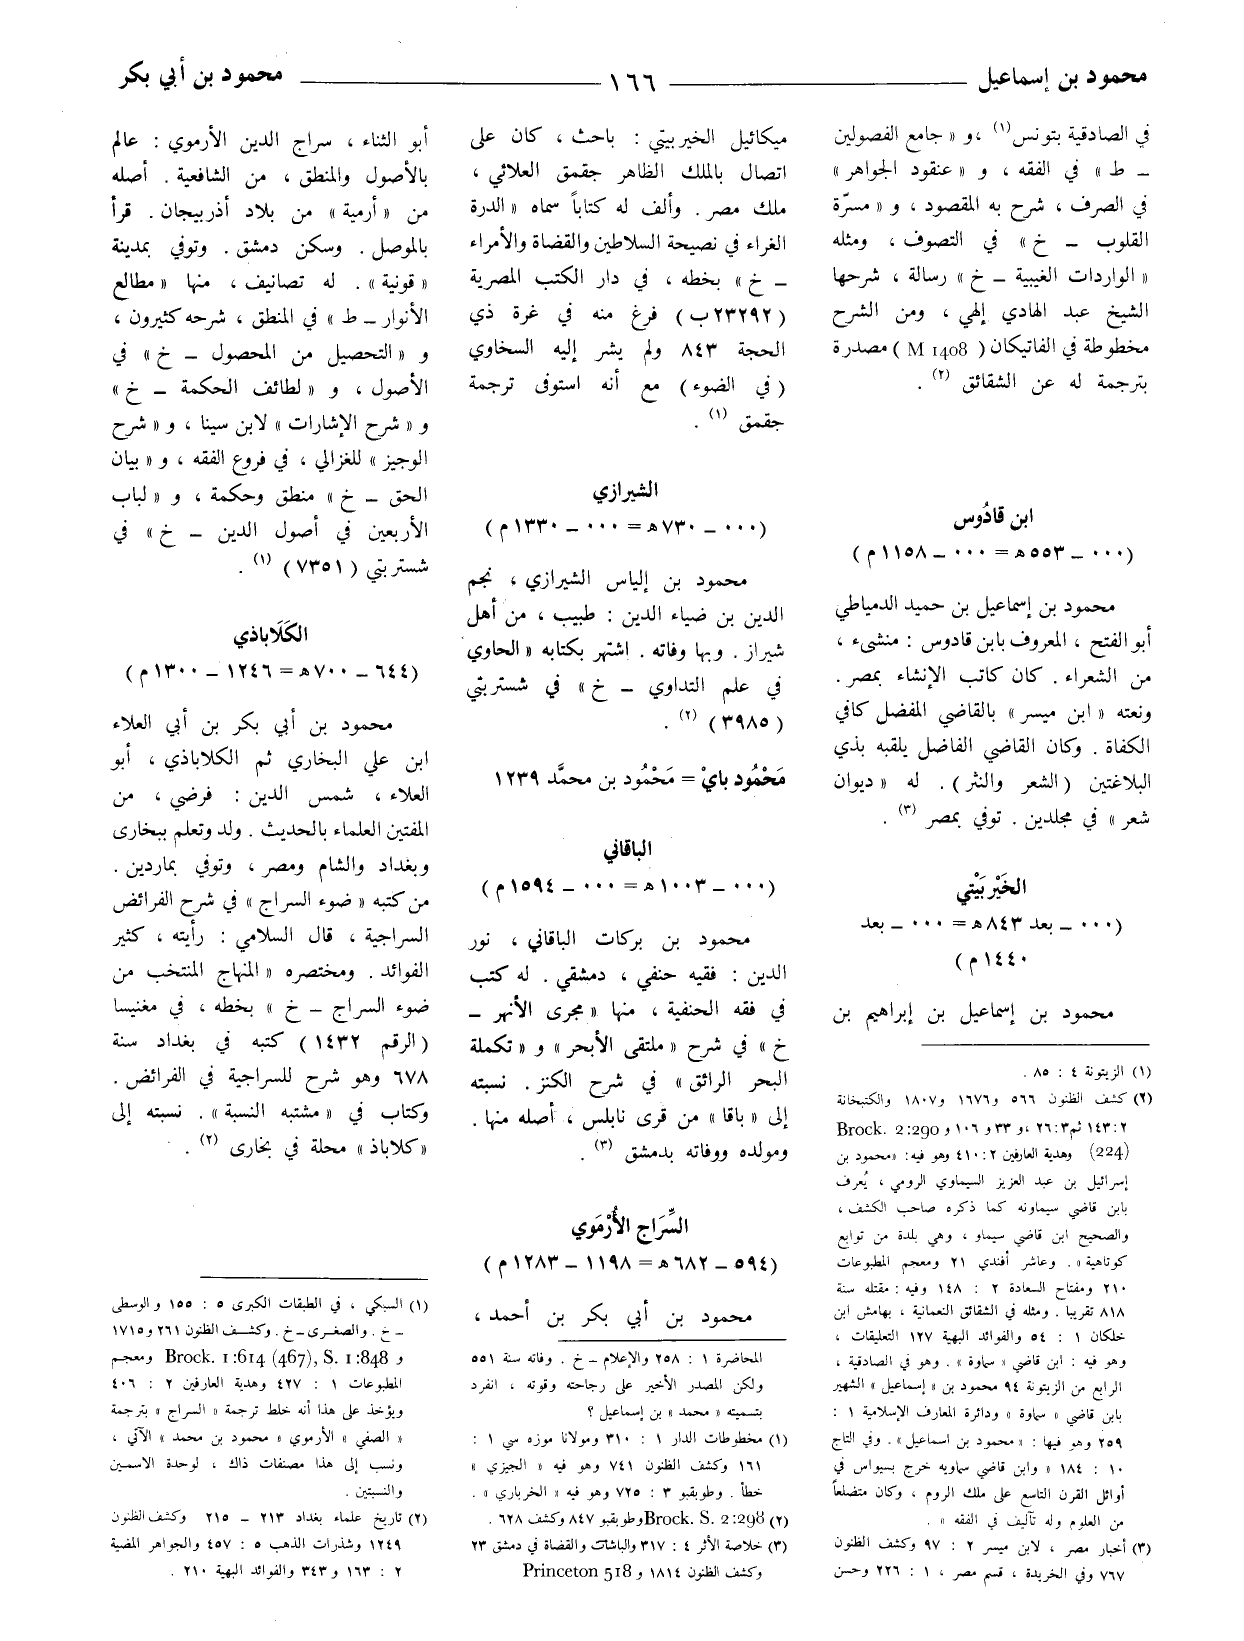 محمود بن إسماعيل ١٦٦ محمود بن أبي بكر
في الصادقية بتونس (١) ،و « جامع الفصولين
ـ ط » في الفقه ، و « عنقود الجواهر »
في الصرف ، شرح به المقصود ، و « مسرّة
القلوب ـ خ » في التصوف ، ومثله
« الواردات الغيبية ـ خ » رسالة ، شرحها
الشيخ عبد الهادي إلهي ، ومن الشرح
مخطوطة في الفاتيكان ( M 1408 ) مصدرة
بترجمة له عن الشقائق (٢) .
ابن قادُوس
(٠٠٠ ـ ٥٥٣ هـ = ٠٠٠ ـ ١١٥٨ م )
محمود بن إسماعيل بن حميد الدمياطي
أبو الفتح ، المعروف بابن قادوس : منشىء ،
من الشعراء . كان كاتب الإنشاء بمصر .
ونعته « ابن ميسر » بالقاضي المفضل كافي
الكفاة . وكان القاضي الفاضل يلقبه بذي
البلاغتين ( الشعر والنثر ) . له « ديوان
شعر » في مجلدين . توفي بمصر (٣) .
الخَيْربَيْتي
(٠٠٠ ـ بعد ٨٤٣ هـ = ٠٠٠ ـ بعد
١٤٤٠ م )
محمود بن إسماعيل بن إبراهيم بن
(١) الزيتونة ٤ : ٨٥ .
(٢) كشف الظنون ٥٦٦ و١٦٧٦ و١٨٠٧ والكتبخانة
٢ :١٤٣ ثم٣ :٢٦ ،و ٣٣ و ١٠٦ و Brock. 2:290
(224) وهدية العارفين ٢ :٤١٠ وهو فيه: «محمود بن
إسرائيل بن عبد العزيز السيماوي الرومي ، يُعرف
بابن قاضي سيماونه كما ذكره صاحب الكشف ،
والصحيح ابن قاضي سيماو ، وهي بلدة من توابع
كوتاهية» . وعاشر أفندي ٢١ ومعجم المطبوعات
٢١٠ ومفتاح السعادة ٢ : ١٤٨ وفيه : مقتله سنة
٨١٨ تقريبا . ومثله في الشقائق النعمانية ، بهامش ابن
خلكان ١ : ٥٤ والفوائد البهية ١٢٧ التعليقات ،
وهو فيه : ابن قاضي « سماوة » . وهو في الصادقية ،
الرابع من الزيتونة ٩٤ محمود بن « إسماعيل » الشهير
بابن قاضي « سماوة » ودائرة المعارف الإسلامية ١ :
٢٥٩ وهو فيها : « محمود بن اسماعيل » . وفي التاج
١٠ : ١٨٤ « وابن قاضي سماويه خرج بسيواس في
أوائل القرن التاسع على ملك الروم ، وكان متضلعاً
من العلوم وله تآليف في الفقه » .
(٣) أخبار مصر ، لابن ميسر ٢ : ٩٧ وكشف الظنون
٧٦٧ وفي الخريدة ، قسم مصر ، ١ : ٢٢٦ وحسن
ميكائيل الخيربيتي : باحث ، كان على
اتصال بالملك الظاهر جقمق العلائي ،
ملك مصر . وألف له كتاباً سماه « الدرة
الغراء في نصيحة السلاطين والقضاة والأمراء
ـ خ » بخطه ، في دار الكتب المصرية
(٢٣٢٩٢ب ) فرغ منه في غرة ذي
الحجة ٨٤٣ ولم يشر إليه السخاوي
( في الضوء ) مع أنه استوفى ترجمة
جقمق (١) .
الشيرازي
(٠٠٠ ـ ٧٣٠ هـ = ٠٠٠ ـ ١٣٣٠ م )
محمود بن إلياس الشيرازي ، نجم
الدين بن ضياء الدين : طبيب ، من أهل
شيراز . وبها وفاته . اشتهر بكتابه « الحاوي
في علم التداوي ـ خ » في شستربتي
( ٣٩٨٥ ) (٢) .
مَحْمُود بايْ = مَحْمُود بن محمَّد ١٢٣٩
الباقاني
(٠٠٠ ـ ١٠٠٣ هـ = ٠٠٠ ـ ١٥٩٤ م )
محمود بن بركات الباقاني ، نور
الدين : فقيه حنفي ، دمشقي . له كتب
في فقه الحنفية ، منها « مجرى الأنهر ـ
خ » في شرح « ملتقى الأبحر » و « تكملة
البحر الرائق » في شرح الكنز . نسبته
إلى « باقا » من قرى نابلس ، أصله منها .
ومولده ووفاته بدمشق (٣) .
السِّرَاج الأُرْمَوي
(٥٩٤ ـ ٦٨٢ هـ = ١١٩٨ ـ ١٢٨٣ م )
محمود بن أبي بكر بن أحمد ،
المحاضرة ١ : ٢٥٨ والإعلام ـ خ . وفاته سنة ٥٥١
ولكن المصدر الأخير على رجاحته وقوته ، انفرد
بتسميته « محمد » بن إسماعيل ؟
(١) مخطوطات الدار ١ : ٣١٠ ومولانا موزه سي ١ :
١٦١ وكشف الظنون ٧٤١ وهو فيه « الجيزي »
خطأ . وطوبقبو ٣ : ٧٢٥ وهو فيه « الخرباري » .
(٢) Brock. S. 2:298 وطوبقبو ٨٤٧ وكشف ٦٢٨ .
(٣) خلاصة الأثر ٤ : ٣١٧ والباشات والقضاة في دمشق ٢٣
وكشف الظنون ١٨١٤ و Princeton 518
أبو الثناء ، سراج الدين الأرموي : عالم
بالأصول والمنطق ، من الشافعية . أصله
من « أرمية » من بلاد أذربيجان . قرأ
بالموصل . وسكن دمشق . وتوفي بمدينة
« قونية » . له تصانيف ، منها « مطالع
الأنوار ـ ط » في المنطق ، شرحه كثيرون ،
و « التحصيل من المحصول ـ خ » في
الأصول ، و « لطائف الحكمة ـ خ »
و « شرح الإشارات » لابن سينا ، و « شرح
الوجيز » للغزالي ، في فروع الفقه ، و « بيان
الحق ـ خ » منطق وحكمة ، و « لباب
الأربعين في أصول الدين ـ خ » في
شستربتي ( ٧٣٥١ ) (١) .
الكَلَاباذي
(٦٤٤ ـ ٧٠٠ هـ = ١٢٤٦ ـ ١٣٠٠ م )
محمود بن أبي بكر بن أبي العلاء
ابن علي البخاري ثم الكلاباذي ، أبو
العلاء ، شمس الدين : فرضي ، من
المفتين العلماء بالحديث . ولد وتعلم ببخارى
وبغداد والشام ومصر ، وتوفي بماردين .
من كتبه « ضوء السراج » في شرح الفرائض
السراجية ، قال السلامي : رأيته ، كثير
الفوائد . ومختصره « المنهاج المنتخب من
ضوء السراج ـ خ » بخطه ، في مغنيسا
( الرقم ١٤٣٢ ) كتبه في بغداد سنة
٦٧٨ وهو شرح للسراجية في الفرائض .
وكتاب في « مشتبه النسبة » . نسبته إلى
« كلاباذ » محلة في بخارى (٢) .
(١) السبكي ، في الطبقات الكبرى ٥ : ١٥٥ والوسطى
ـ خ . والصغرى ـ خ . وكشف الظنون ٢٦١ و١٧١٥
و Brock. 1:614 (467), S. 1:848 ومعجم
المطبوعات ١ : ٤٢٧ وهدية العارفين ٢ : ٤٠٦
ويؤخذ على هذا أنه خلط ترجمة « السراج » بترجمة
« الصفي » الأرموي « محمود بن محمد » الآتي ،
ونسب إلى هذا مصنفات ذاك ، لوحدة الاسمين
والنسبتين .
(٢) تاريخ علماء بغداد ٢١٣ ـ ٢١٥ وكشف الظنون
١٢٤٩ وشذرات الذهب ٥ : ٤٥٧ والجواهر المضية
٢ : ١٦٣ و ٣٤٣ والفوائد البهية ٢١٠ .